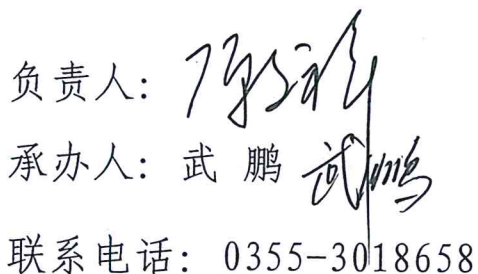 负责人:
承办人: 武 鹏 武鹏
联系电话: 0355-3018658